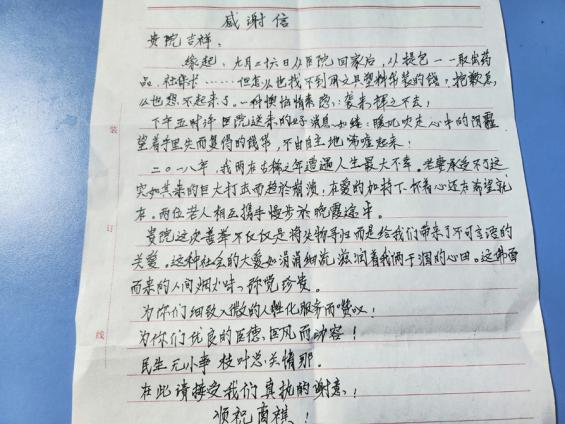 感谢信
贵院吉祥:
缘起,九月二十六日从医院回家后,从提包一一取出药
品,社保卡……但怎么也找不到用文具塑料年装的钱,抱歉怎
么也想不起来了。一种懊恼情绪袭来挥之不去,
下午五时许医院送来的好消息如缕缕暖风吹走心中的阴霾
望着手里失而复得的钱币,不由自主地沸症起来!
二〇一八年,我两在古稀之年遭遇人生最大不幸。老妻承受不了这
突如其来的巨大打击而趋於崩溃,在爱的加持下,怀着心还在希望就
在。两位老人相互携手漫步於晚霞途中。
贵院这次善举不仅仅是将失物寻归而是给我们带来了不可言语的
关爱。这种社会的大爱如涓涓细流滋润着我俩干涸的心田。这拂面
而来的人间烟火味,弥觉珍贵。
为你们细致入微的人性化服务而赞叹!
为你们优良的医德,医风而动容!
民生无小事 枝叶总关情那。
在此请接受我们真执的谢意!
顺祝商祺!
装
订
线